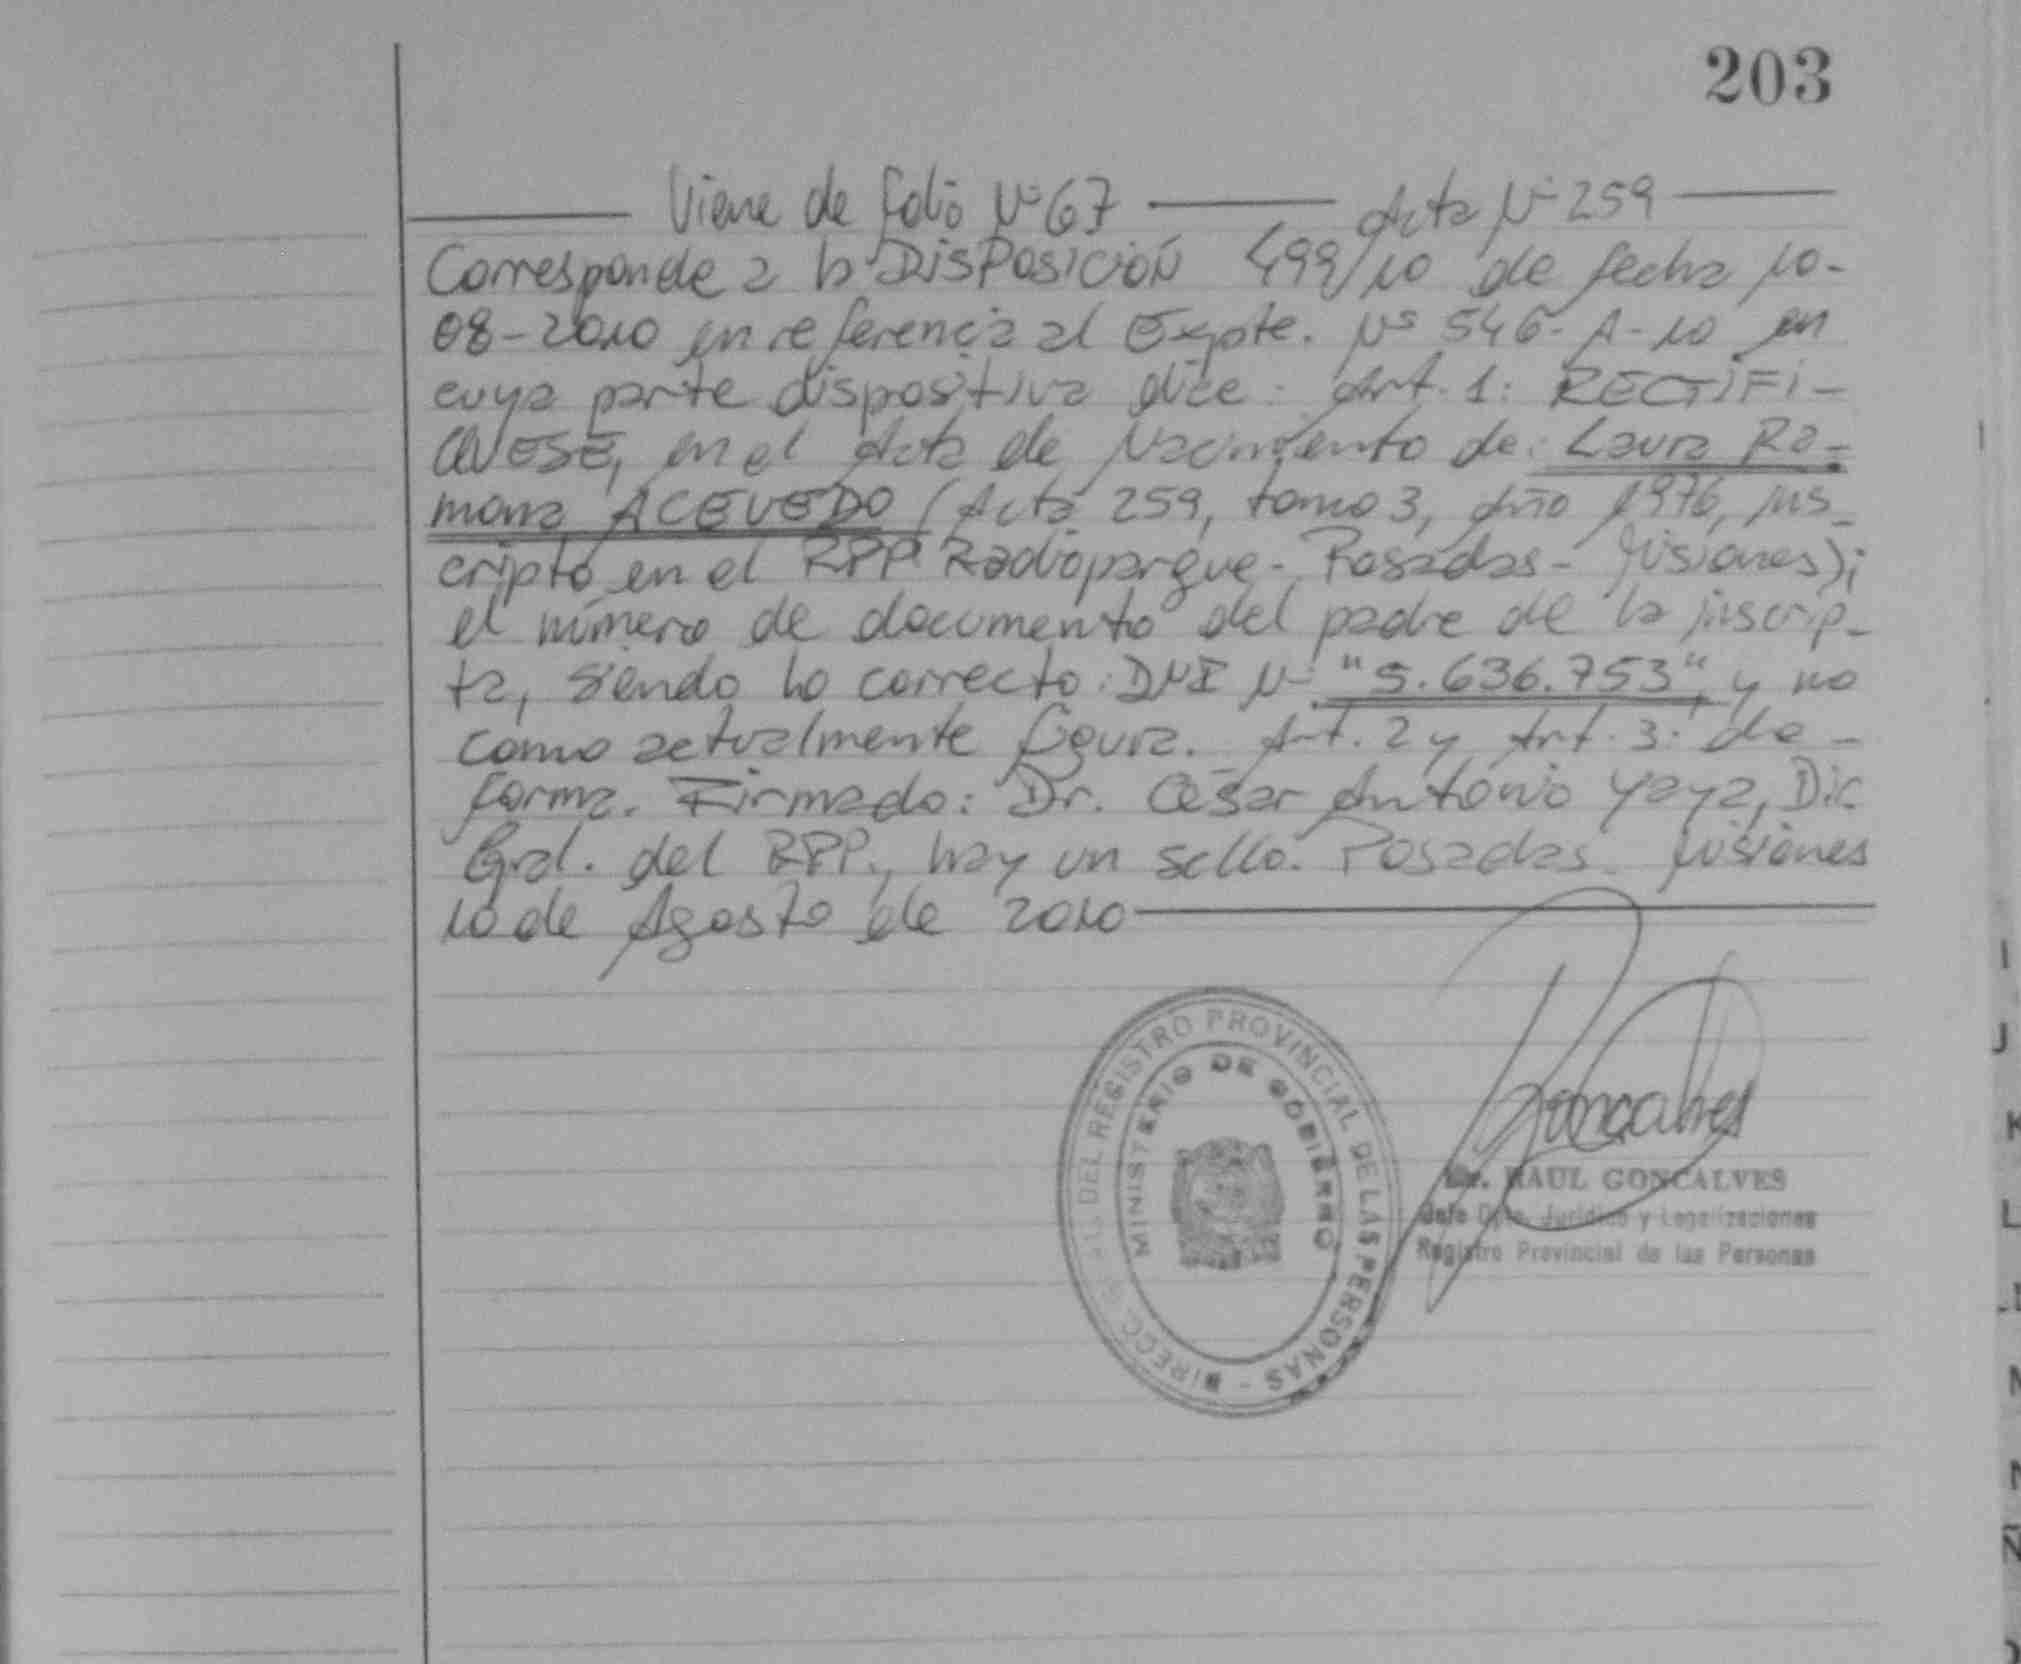 203
Viene de folio Nº 67 Acta Nº 259
Corresponde a la DISPOSICIÓN 499/10 de fecha 10-
08-2010 en referencia al Expte. Nº 546-A-10 en
cuya parte dispositiva dice: Art. 1: RECTIFI-
QUESE, en el Acta de Nacimiento de: Laura Ra-
mona ACEVEDO (Acta 259, tomo 3, Año 1976, ins-
cripto en el RPP Radioparque - Posadas - Misiones);
el número de documento del padre de la inscrip-
ta, siendo lo correcto: DNI Nº "5.636.753", y no
como actualmente figura. Art. 2 y Art. 3: de -
forma. Firmado: Dr. César Antonio Yaya, Dir.
Gral. del RPP., hay un sello. Posadas. Misiones
10 de Agosto de 2010
DIRECC. GRAL. DEL REGISTRO PROVINCIAL DE LAS PERSONAS -
MINISTERIO DE GOBIERNO
Goncalves
Dr. RAUL GONCALVES
Jefe Dpto. Jurídico y Legalizaciones
Registro Provincial de las Personas
I
J
K
L
N
Ñ